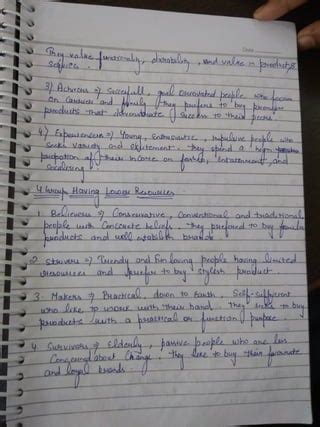 They value functionality, durability, and value in products &
service.
3) Achievers ⇒ Successfull, goal orientated people who focus
on carrier and family they prefers to buy premium
products that demonstrate success to their peers.
4) Experiencers ⇒ Young, Enthusiastic, impulsive people who
seek variety and excitement. They spend a high
propotion of their income on fashion, entertainment, and
socializing
4 Group Having Lower Resources
1. Believers ⇒ Conservative, Conventional and traditional
people with Concrete beliefs. They prefered to buy familiar
products and well establish brands
2 Strivers ⇒ Trendy and Fun loving people having limited
resources and prefer to buy stylish product
3. Makers ⇒ Practical, down to earth, Self-sufficient
who like to work with their hand. They like to buy
products with a practical or function purpose
4. Survivors ⇒ Elderly, passive people who are less
Concerned about change. They like to buy their favourate
and loyal brands.